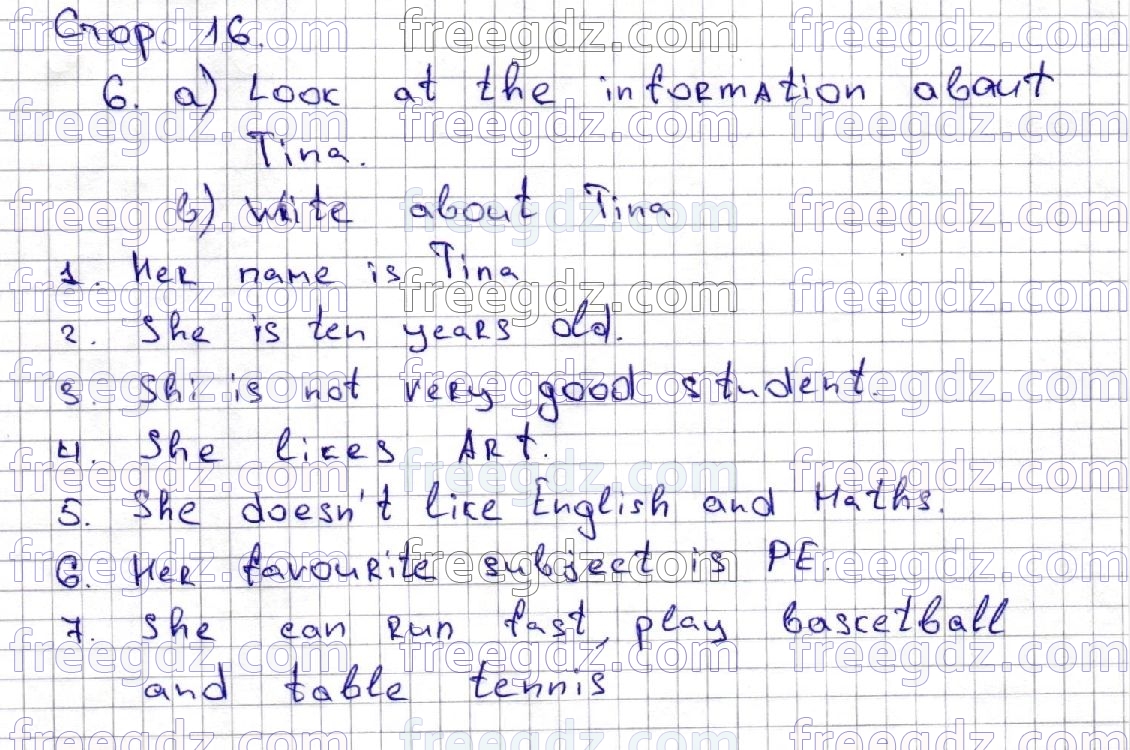 Стор. 16.
6. a) Look at the information about
Tina.
b) write about Tina
1. Her name is Tina
2. She is ten years old.
3. Shi is not very good student.
4. She likes Art.
5. She doesn't like English and Maths.
6. Her favourite subject is PE.
7. She can run fast, play bascetball
and table tennis
freegdz.com